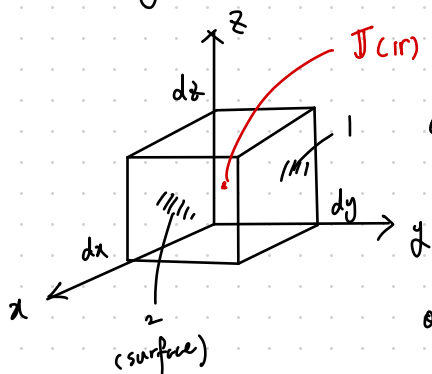 z
J(r)
dz
1
dy
y
dx
x
2
(surface)